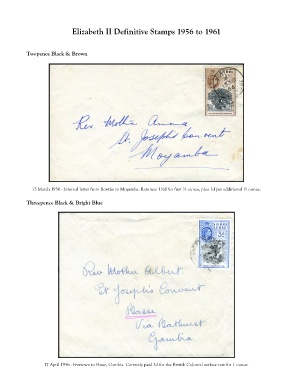 Elizabeth II Definitive Stamps 1956 to 1961
Twopence Black & Brown
Rev. Mother Anna
St. Joseph's Convent
Moyamba
15 March 1958 - Internal letter from to Moyamba. Rate was for first ounce, plus 1d per additional ounce.
Threepence Black & Bright Blue
SIERRA LEONE
3d
Rev Mother Albert
St Joseph's Convent
Basse
Via Bathurst
Gambia
17 April 1956 - Freetown to Basse, Gambia. Correctly paid 3d for the British Colonial surface rate for 1 ounce.